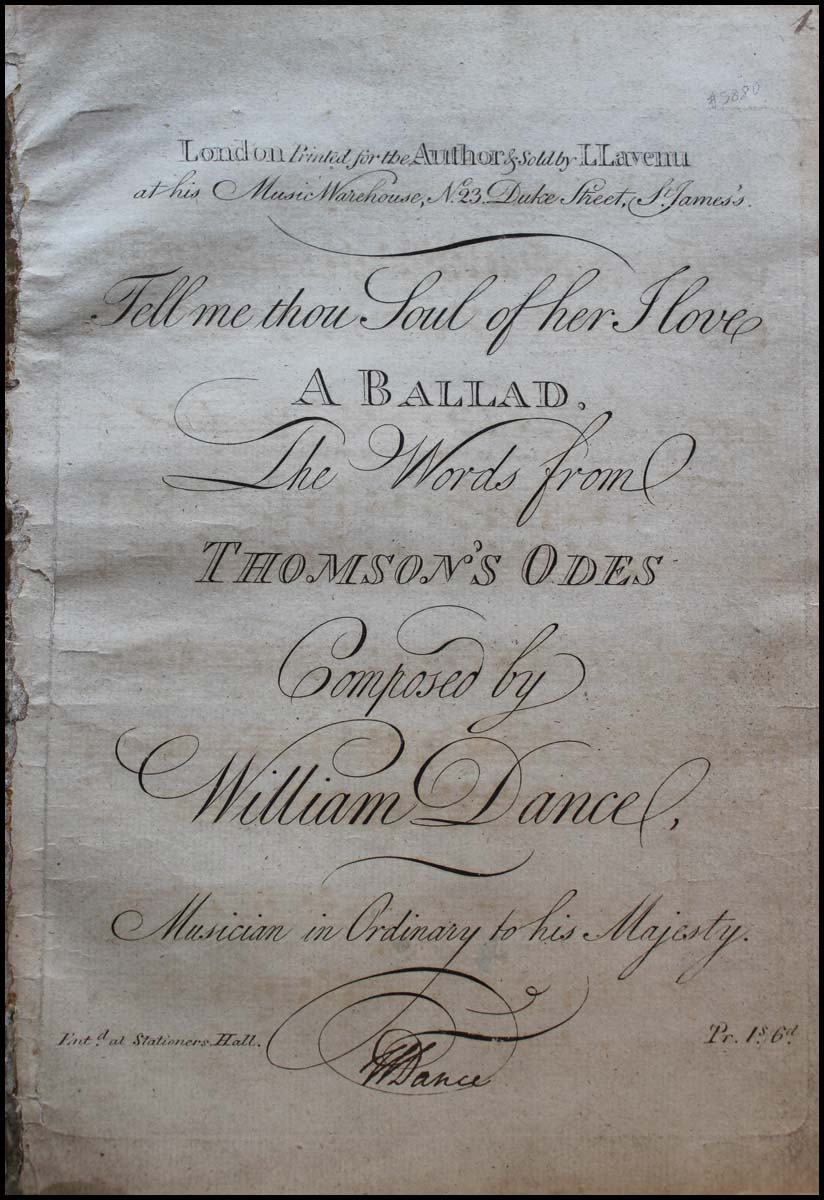 1
#5880
London Printed for the Author & Sold by L Lavenu
at his Music Warehouse, No. 23. Duke Street, St. James's.
Tell me thou Soul of her I love
A BALLAD.
The Words from
THOMSON'S ODES
Composed by
William Dance,
Musician in Ordinary to his Majesty.
Ent.d at Stationers Hall.
Pr. 1s. 6d.
WDance